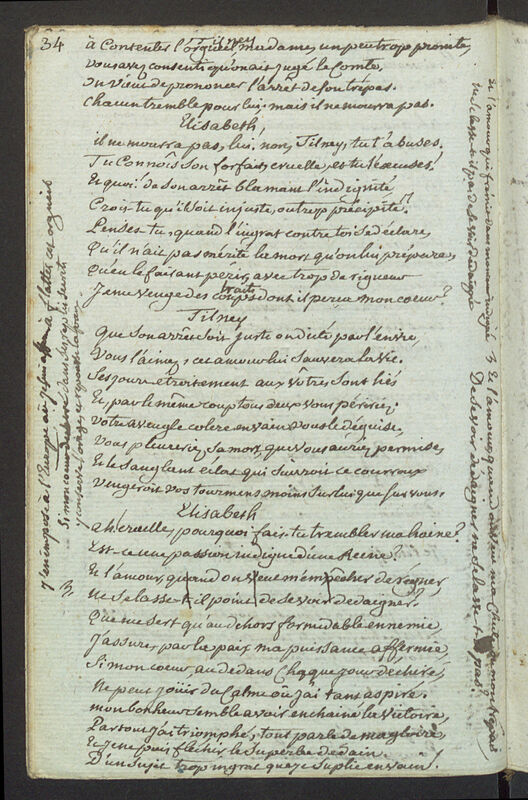 34
Tilney
à Contenter l'orgueil, madame, un peu trop prompte,
vous avez consenti qu'on ait jugé le Comte,
on vient de prononcer l'arrêt de son trépas.
chacun tremble pour lui, mais il ne mourra pas.
Elisabeth,
il ne mourra pas, lui, non, Tilney, tu t'abuses.
Tu Connois son forfait, cruelle, et tu l'excuses!
Et quoi! de son arrêt blamant l'indignité
Crois-tu qu'il soit injuste, ou trop précipité?
Penses-tu, quand l'ingrat contre toi se declare,
Qu'il n'ait pas mérité la mort qu'on lui prépare,
Qu'en le faisant perir, avec trop de rigueur
Je me venge des traits dont il perça mon coeur?
Tilney
Que son arrêt soit juste ou dicté par l'envie,
Vous l'aimez, cet amour lui sauvera la vie.
Ses jours etroitement aux vôtres sont liés
Et, par le même coup tous deux vous péririez.
Votre aveugle colere en vain vous le déguise,
Vous pleureriez sa mort, que vous auriez permise,
Et le sanglant eclat qui suivroit ce courroux
Vengeroit vos tourmens moins sur lui que sur vous.
Elisabeth
ah! cruelle, pourquoi fais-tu trembler ma haine?
Est-ce une passion indigne d'une Reine?
Et l'amour, quand on veut m'empêcher de régner,
Ne se lasse-t-il point de se voir dédaigner?
Que me sert qu'au dehors formidable ennemie,
J'assure par la paix ma puissance affermie,
Si mon coeur, au dedans chaque jour déchiré,
Ne peut jouir du Calme où j'ai tant aspiré.
mon bonheur semble avoir enchainé la victoire,
Partout j'ai triomphé, tout parle de ma gloire,
Et je ne puis flechir le superbe dedain
D'un sujet trop ingrat que je suplie en vain!
J'en impose à l'Europe
Si mon coeur
Et l'amour
De se voir dédaigner ne se lasse-t-il pas?